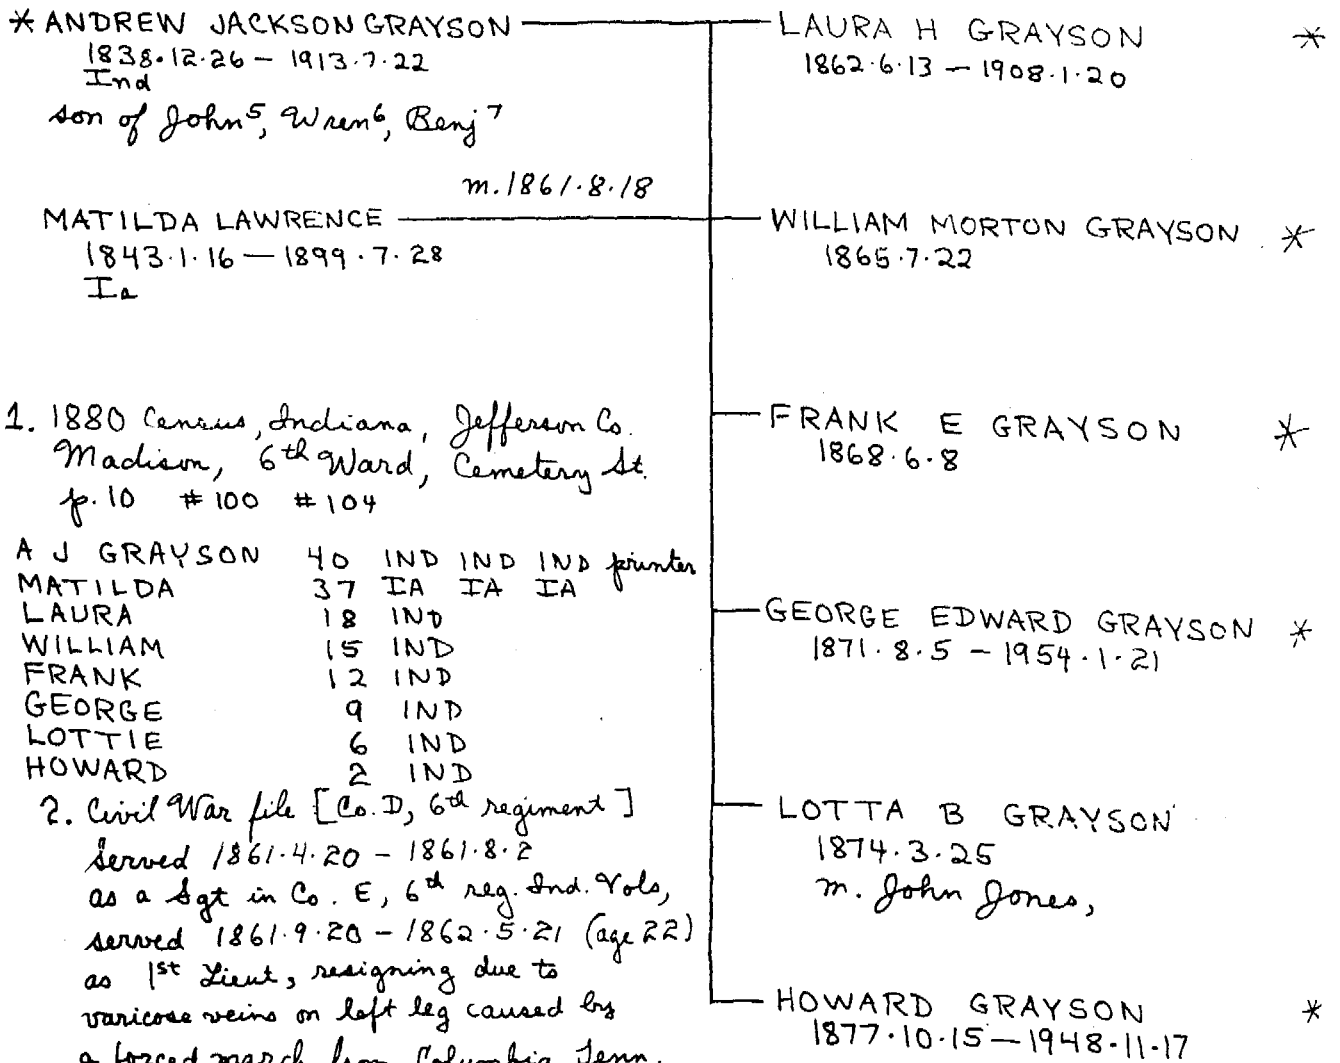 * ANDREW JACKSON GRAYSON
1838.12.26 – 1913.7.22
Ind
son of John⁵, Wren⁶, Benj⁷
m. 1861.8.18
MATILDA LAWRENCE
1843.1.16 – 1899.7.28
Ia
1. 1880 Census, Indiana, Jefferson Co.
Madison, 6th Ward, Cemetery St.
p. 10 #100 #104
A J GRAYSON 40 IND IND IND printer
MATILDA 37 IA IA IA
LAURA 18 IND
WILLIAM 15 IND
FRANK 12 IND
GEORGE 9 IND
LOTTIE 6 IND
HOWARD 2 IND
2. Civil War file [Co. D, 6th regiment]
served 1861.4.20 – 1861.8.2
as a Sgt in Co. E, 6th reg. Ind. Vols,
served 1861.9.20 – 1862.5.21 (age 22)
as 1st Lieut, resigning due to
varicose veins on left leg caused by
a forced march from Columbia Tenn.
LAURA H GRAYSON *
1862.6.13 – 1908.1.20
WILLIAM MORTON GRAYSON *
1865.7.22
FRANK E GRAYSON *
1868.6.8
GEORGE EDWARD GRAYSON *
1871.8.5 – 1954.1.21
LOTTA B GRAYSON
1874.3.25
m. John Jones,
HOWARD GRAYSON *
1877.10.15 – 1948.11.17